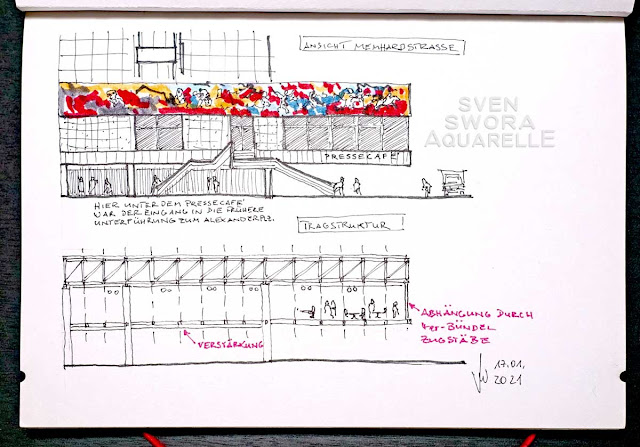 ANSICHT MEMHARDSTRASSE
SVEN
SWORA
AQUARELLE
PRESSECAFÉ
HIER UNTER DEM PRESSECAFÉ
WAR DER EINGANG IN DIE FRÜHERE
UNTERFÜHRUNG ZUM ALEXANDERPLZ.
TRAGSTRUKTUR
ABHÄNGUNG DURCH
4er-BÜNDEL
ZUGSTÄBE
VERSTÄRKUNG
17.01.
2021